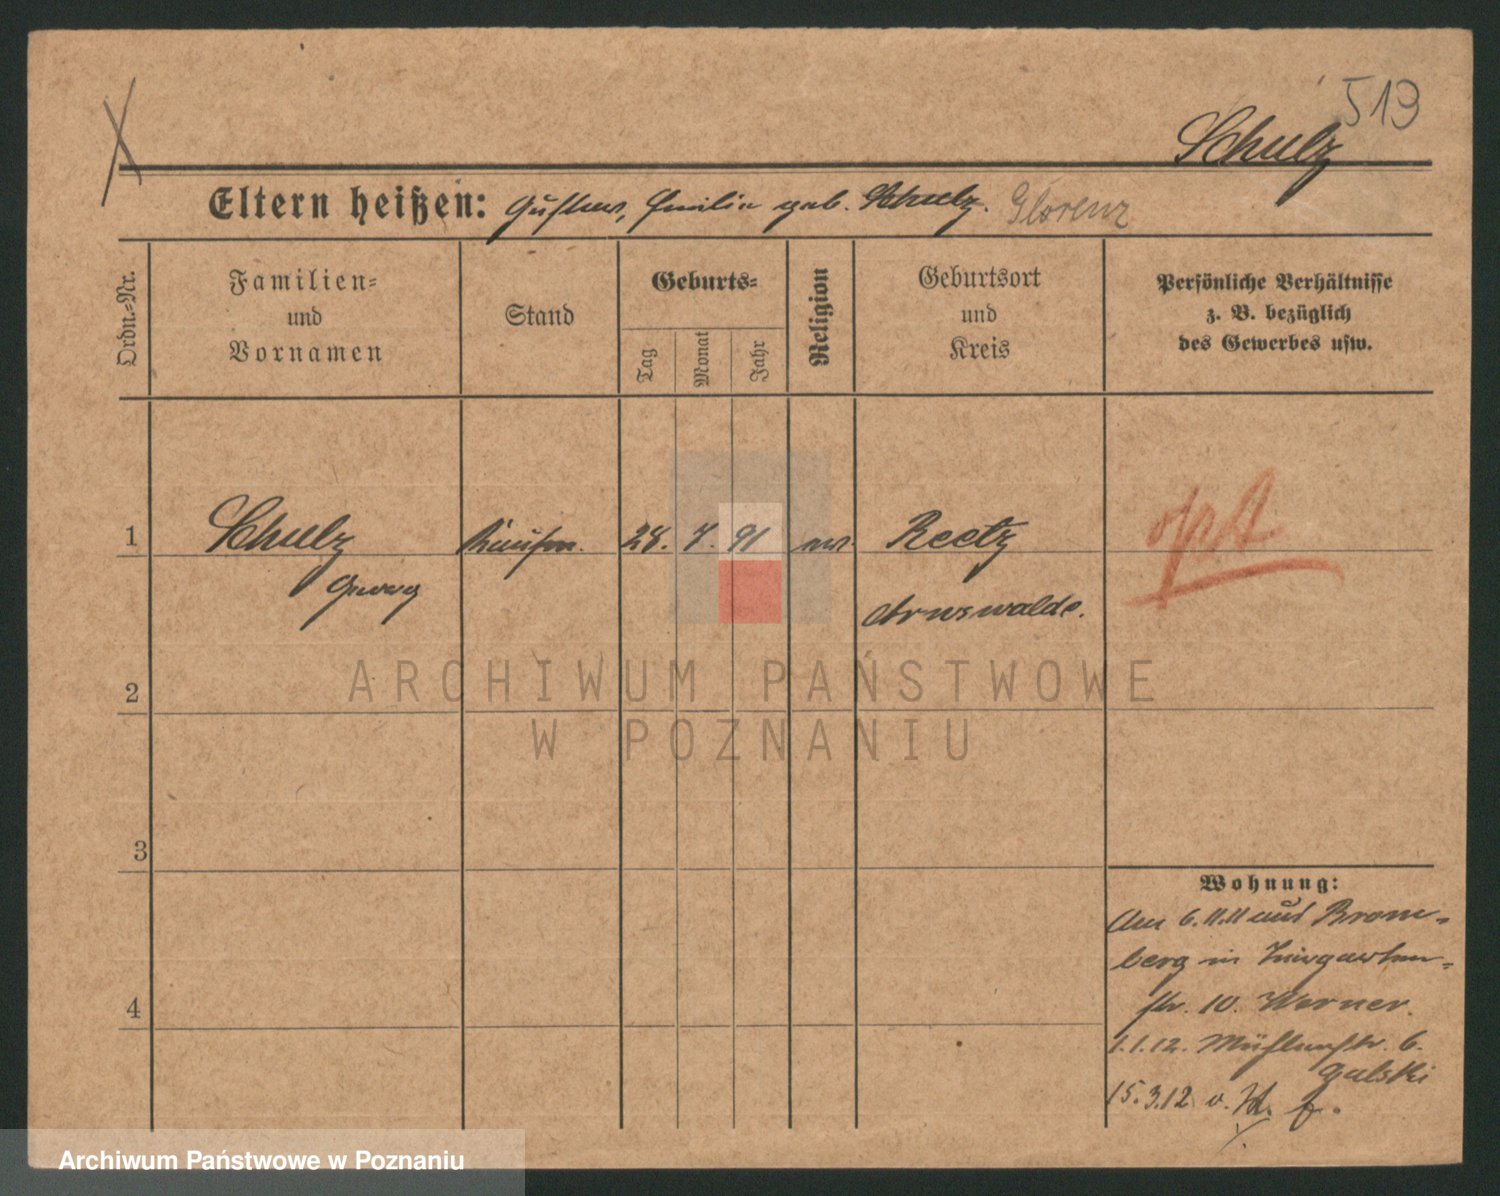 519
Schulz
Eltern heißen: Gustav, Emilie geb. Schulz. Glorenz
Ordn.=Nr.
Familien=
und
Vornamen
Stand
Geburts=
Tag
Monat
Jahr
Religion
Geburtsort
und
Kreis
Persönliche Verhältnisse
z. B. bezüglich
des Gewerbes usw.
1
Schulz
Georg
Kaufm.
28. 7. 91
ev.
Reetz
Arnswalde.
2
ARCHIWUM PAŃSTWOWE
W POZNANIU
3
4
Wohnung:
Am 6.11.11 aus Brom=
berg in
str. 10. Werner.
1.1.12. Mühlenstr. 6.
Galski
15.3.12 v.
Archiwum Państwowe w Poznaniu